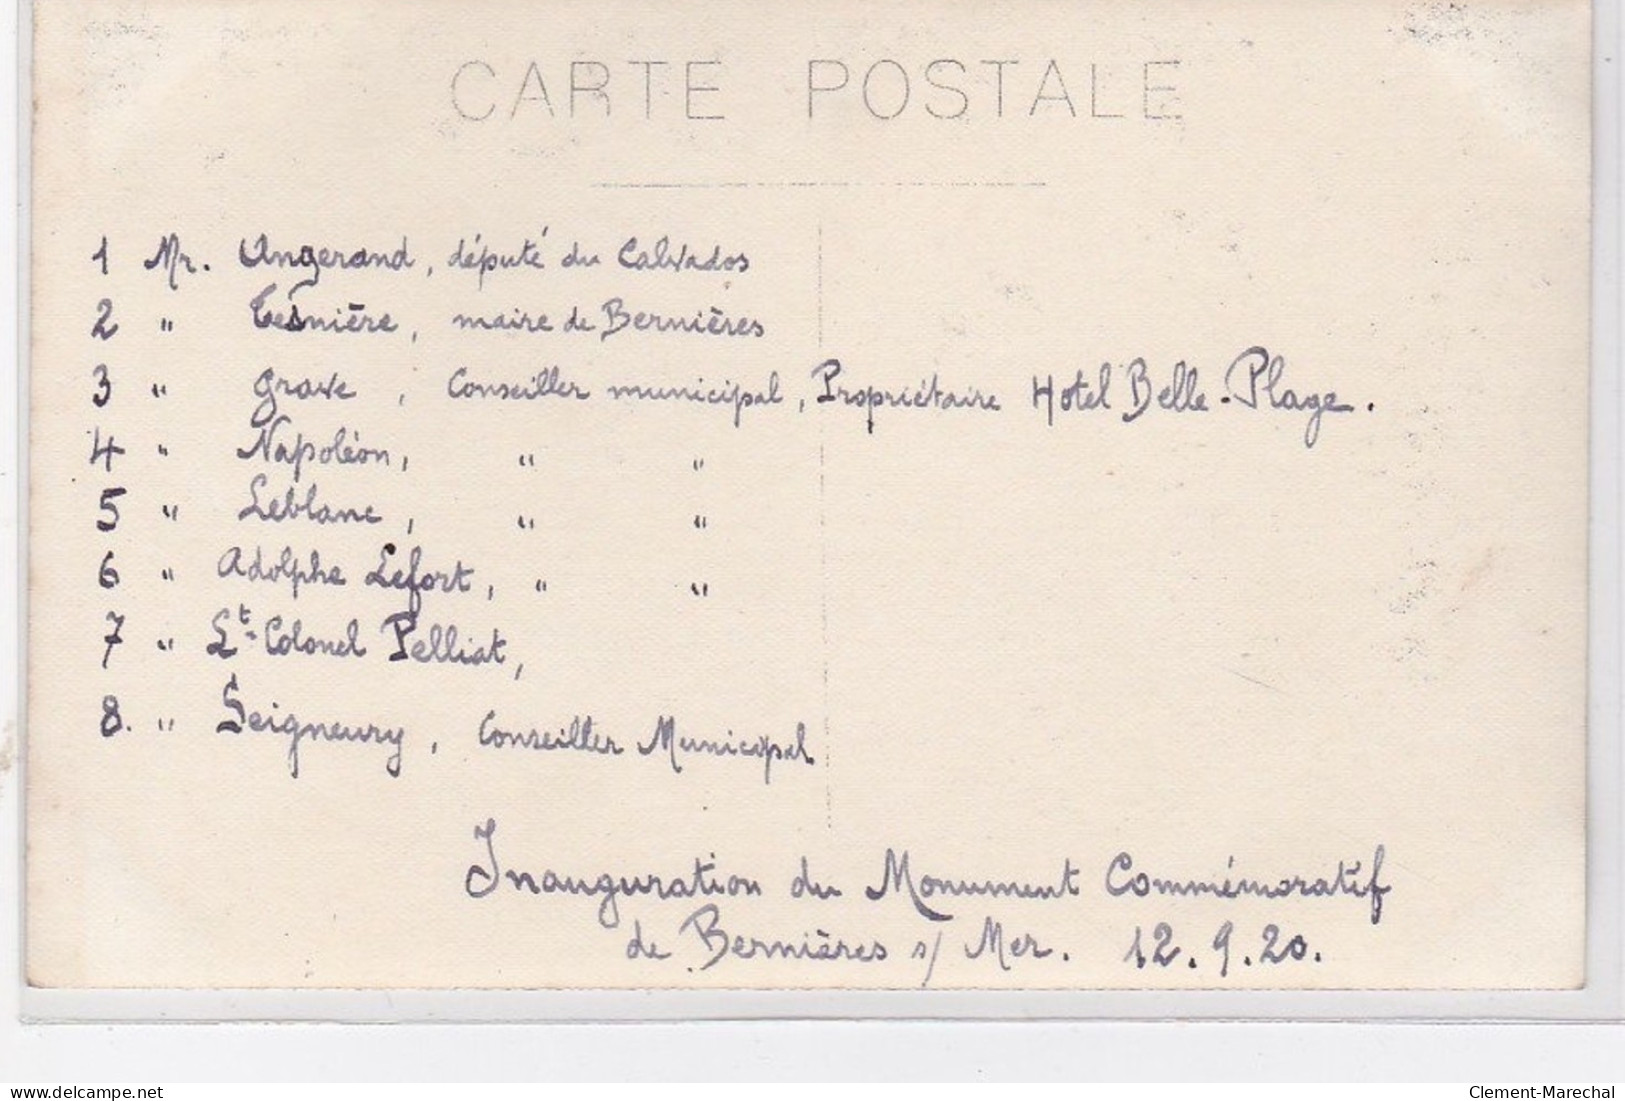 CARTE POSTALE
1 Mr. Angerand, député du Calvados
2 " Tesnière, maire de Bernières
3 " Grave, Conseiller municipal, Propriétaire Hotel Belle-Plage.
4 " Napoléon, " "
5 " Leblanc, " "
6 " Adolphe Lefort, " "
7 " Lt-Colonel Pelliat,
8. " Seigneury, Conseiller Municipal
Inauguration du Monument Commémoratif
de Bernières s/ Mer. 12.9.20.
www.delcampe.net
Clement-Marechal